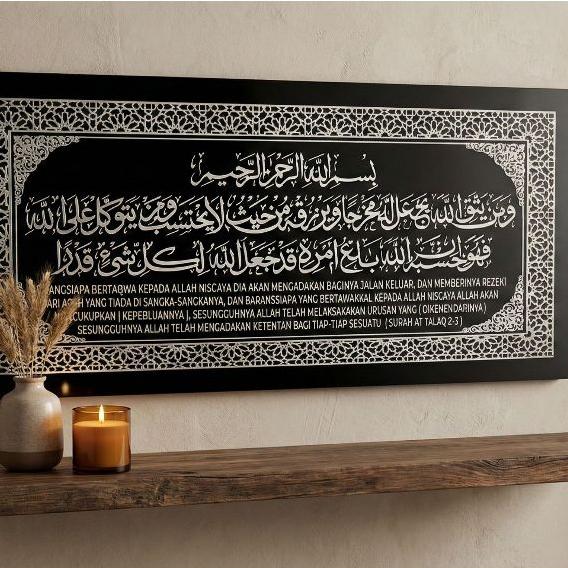 بسم الله الرحمن الرحيم
ومن يتق الله يجعل له مخرجا ويرزقه من حيث لا يحتسب ومن يتوكل على الله
فهو حسبه إن الله بالغ أمره قد جعل الله لكل شيء قدرا
ANGSIAPA BERTAQWA KEPADA ALLAH NISCAYA DIA AKAN MENGADAKAN BAGINYA JALAN KELUAR, DAN MEMBERINYA REZEKI
ARI ARAH YANG TIADA DI SANGKA-SANGKANYA, DAN BARANSSIAPA YANG BERTAWAKKAL KEPADA ALLAH NISCAYA ALLAH AKAN
CUKUPKAN [ KEPEBLUANNYA ], SESUNGGUHNYA ALLAH TELAH MELAKSAKAKAN URUSAN YANG ( DIKENENDARINYA )
SESUNGGUHNYA ALLAH TELAH MENGADAKAN KETENTAN BAGI TIAP-TIAP SESUATU ( SURAH AT TALAQ 2-3 )